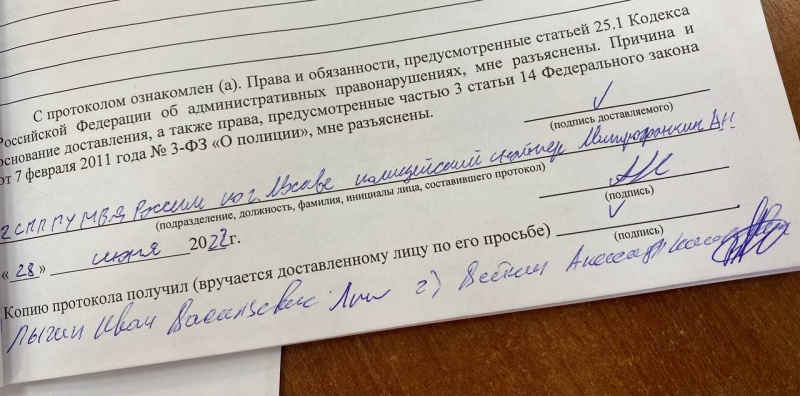 С протоколом ознакомлен (а). Права и обязанности, предусмотренные статьей 25.1 Кодекса
Российской Федерации об административных правонарушениях, мне разъяснены. Причина и
основание доставления, а также права, предусмотренные частью 3 статьи 14 Федерального закона
от 7 февраля 2011 года № 3-ФЗ «О полиции», мне разъяснены.
(подпись доставляемого)
МВД России по г. Москве полицейский Митрофанкин АН
(подразделение, должность, фамилия, инициалы лица, составившего протокол)
(подпись)
«28» июня 2022г.
Копию протокола получил (вручается доставленному лицу по его просьбе)
(подпись)
Лыгин Иван Васильевич 2)